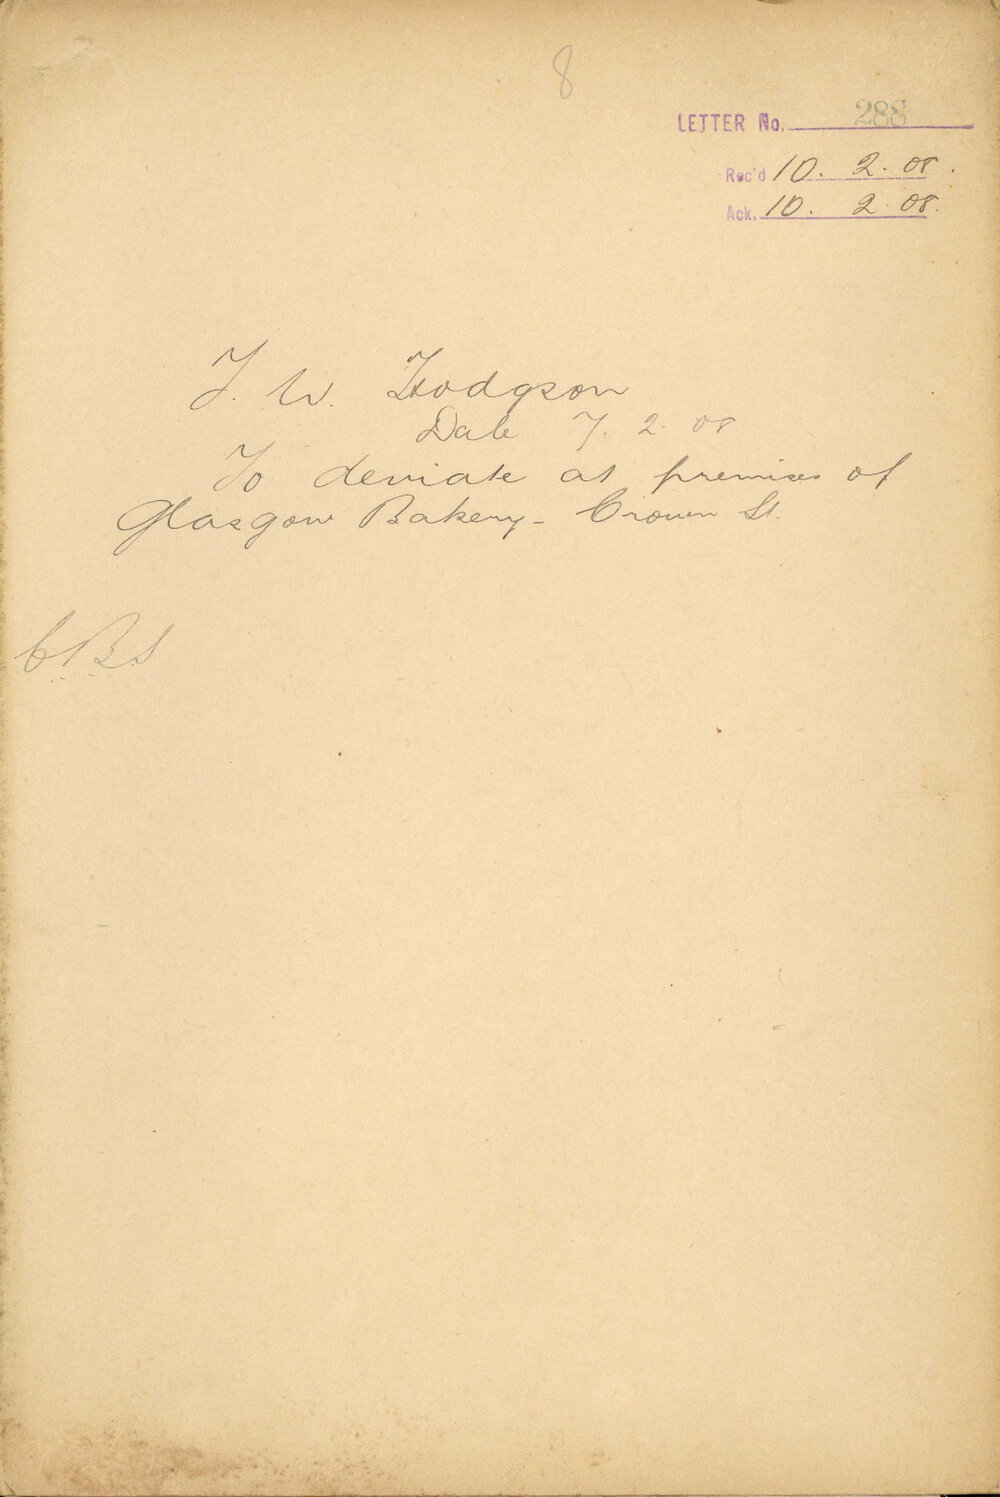 8
LETTER No. 288
Rec'd 10. 2. 08.
Ack. 10. 2. 08.
J. W. Hodgson
Date 7. 2. 08
To deviate at premises of
Glasgow Bakery - Crown St.
C.B.S